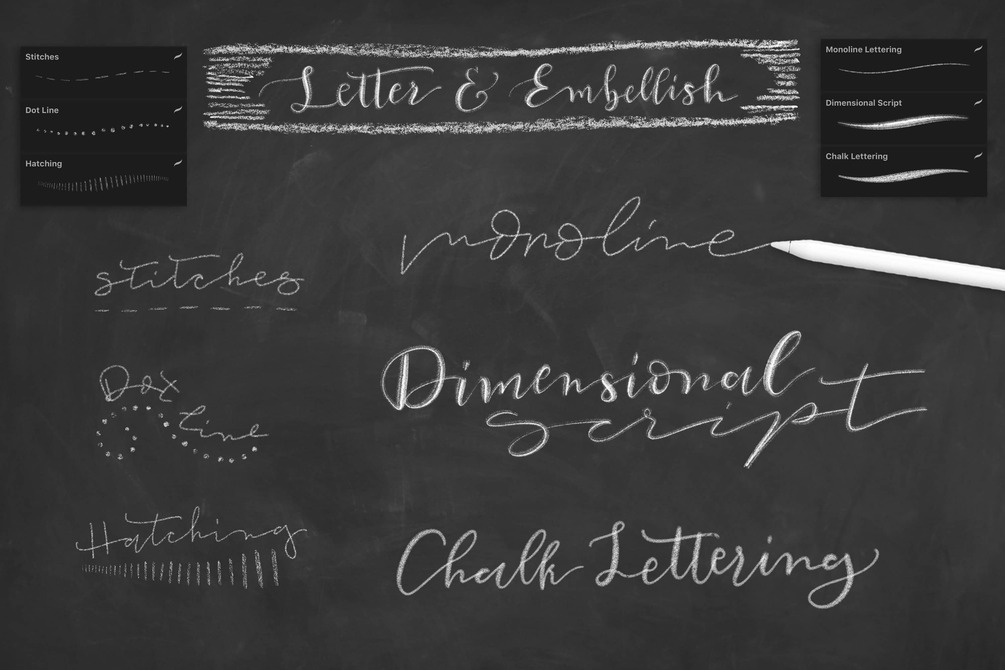 Letter & Embellish
Stitches
Dot Line
Hatching
Monoline Lettering
Dimensional Script
Chalk Lettering
stitches
Dot
Line
Hatching
monoline
Dimensional
script
Chalk Lettering